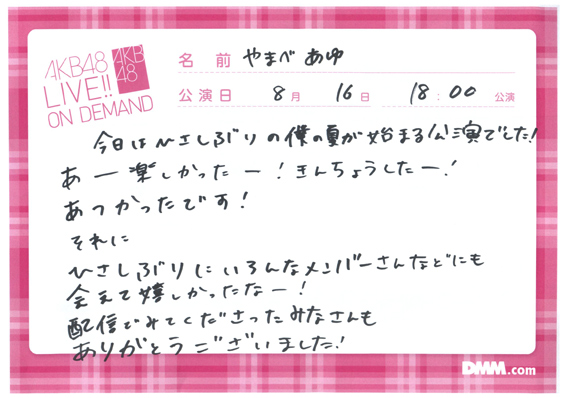 AKB48
LIVE!!
ON DEMAND
AKB
48
名前 やまべ あゆ
公演日 8月 16日 18:00 公演
今日はひさしぶりの僕の夏が始まる公演でした!
あー楽しかったー!きんちょうしたー!
あつかったです!
それに
ひさしぶりにいろんなメンバーさんなどにも
会えて嬉しかったなー!
配信でみてくださったみなさんも
ありがとうございました!
DMM.com